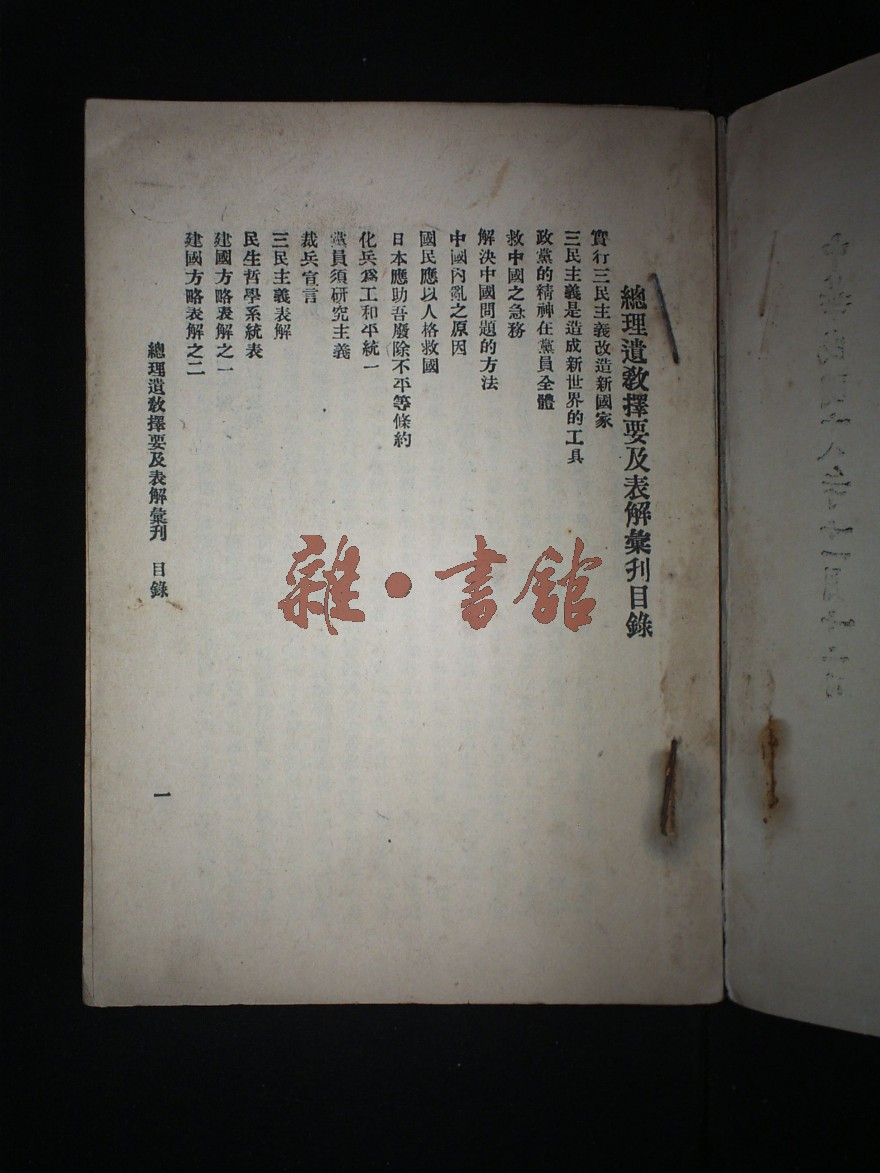 總理遺敎擇要及表解彙刊目錄
實行三民主義改造新國家
三民主義是造成新世界的工具
政黨的精神在黨員全體
救中國之急務
解決中國問題的方法
中國內亂之原因
國民應以人格救國
日本應助吾廢除不平等條約
化兵爲工和平統一
黨員須研究主義
裁兵宣言
三民主義表解
民生哲學系統表
建國方略表解之一
建國方略表解之二
總理遺敎擇要及表解彙刊 目錄
一
雜·書館